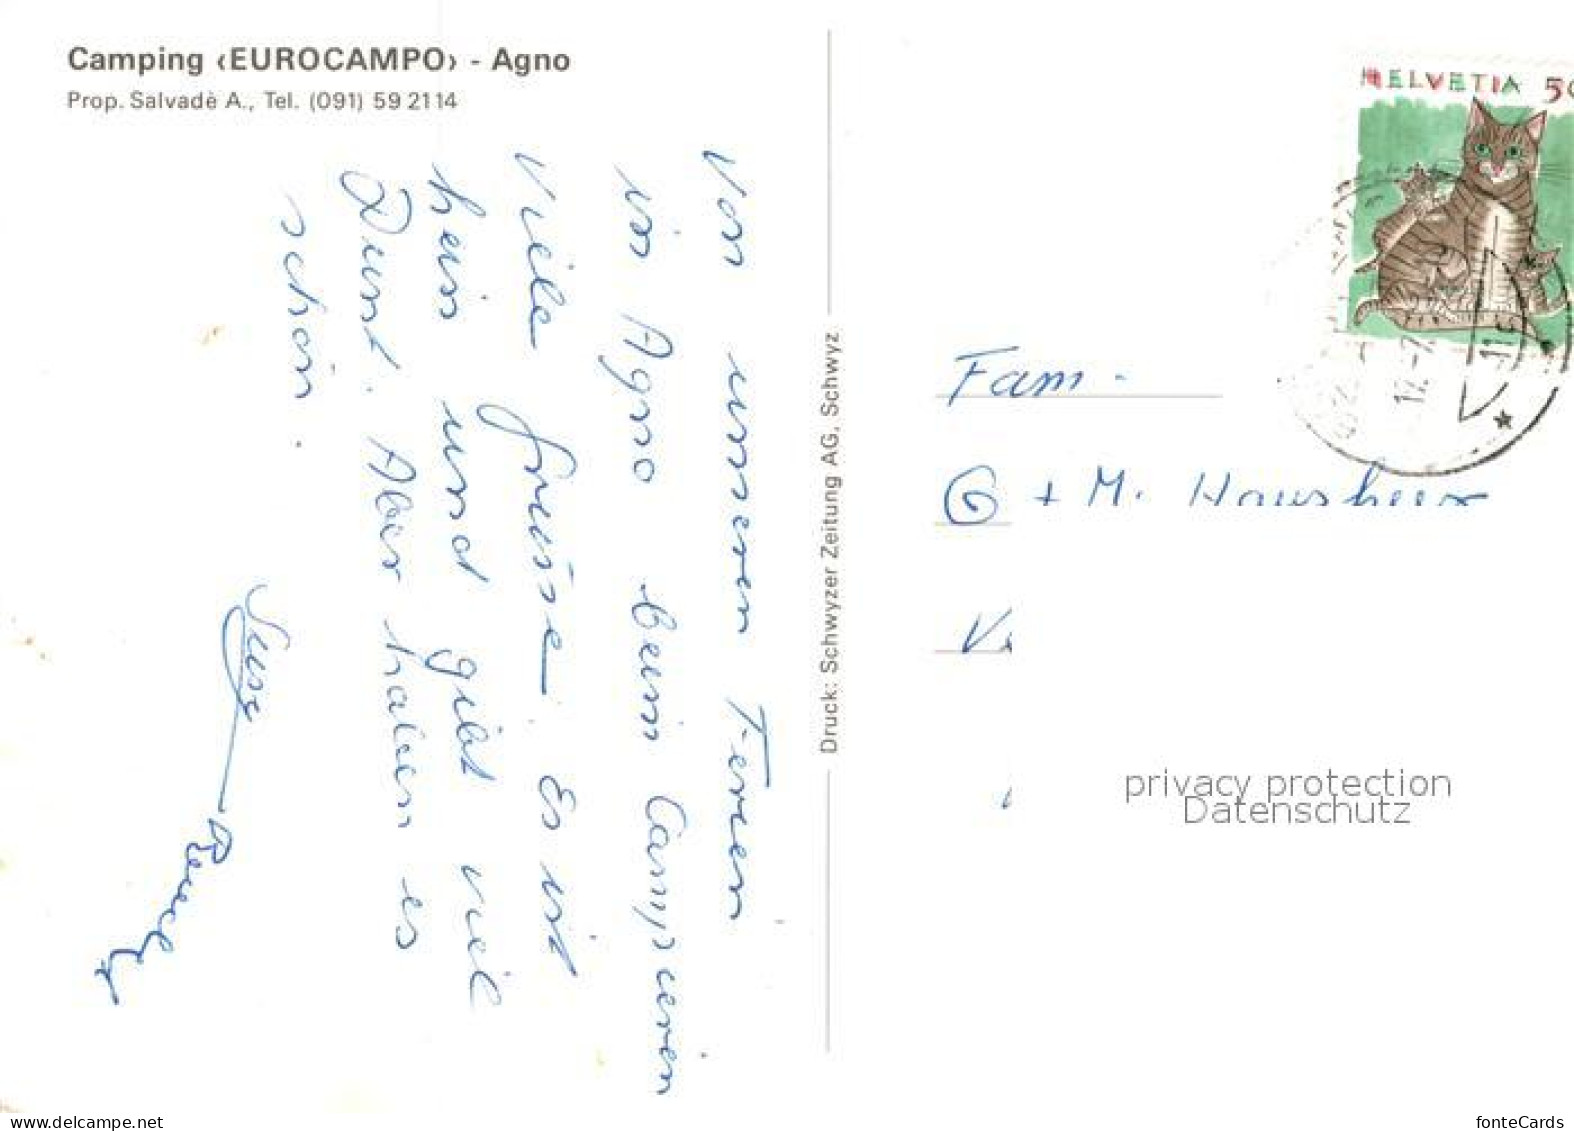 Camping ‹EUROCAMPO› - Agno
Prop. Salvadè A., Tel. (091) 59 21 14
Von unseren Ferien
in Agno beim Campieren
Viele Grüsse. Es ist
heiss und gibt viel
Durst. Aber haben es
schön.
Druck: Schwyzer Zeitung AG, Schwyz
HELVETIA 50
Fam.
G + M. Hausheer
privacy protection
Datenschutz
www.delcampe.net
fonteCards